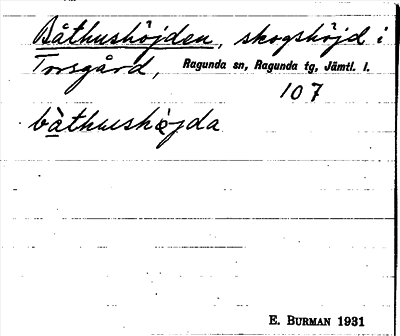 Båthushöjden, skogshöjd i
Torsgård, Ragunda sn, Ragunda tg, Jämtl. l.
107
bàthushöjda
E. BURMAN 1931